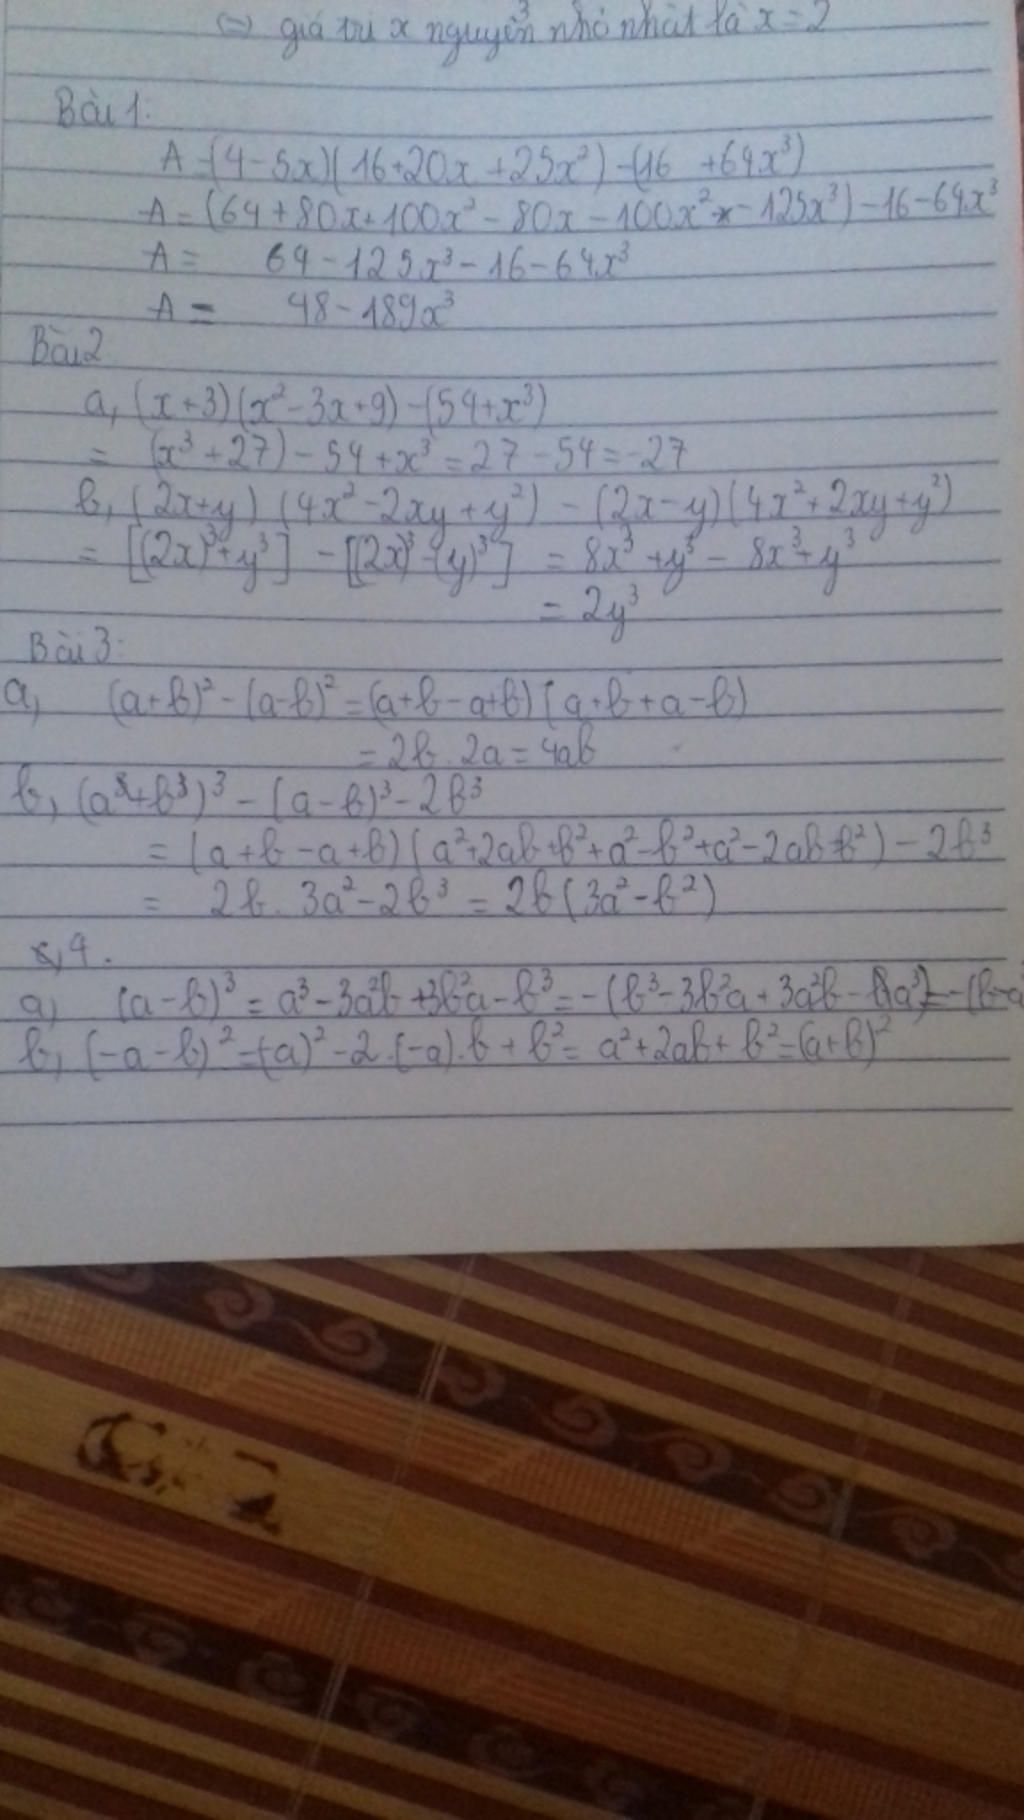 => giá trị x nguyên nhỏ nhất là x = 2
Bài 1:
A = (4 - 5x)(16 + 20x + 25x²) - (16 + 64x³)
A = (64 + 80x + 100x² - 80x - 100x² - 125x³) - 16 - 64x³
A = 64 - 125x³ - 16 - 64x³
A = 48 - 189x³
Bài 2
a, (x + 3)(x² - 3x + 9) - (54 + x³)
= (x³ + 27) - 54 + x³ = 27 - 54 = -27
b, (2x + y) (4x² - 2xy + y²) - (2x - y)(4x² + 2xy + y²)
= [(2x)³ + y³] - [(2x)³ - (y)³] = 8x³ + y³ - 8x³ + y³
= 2y³
Bài 3:
a, (a + b)² - (a - b)² = (a + b - a + b) (a + b + a - b)
= 2b . 2a = 4ab
b, (a³ + b³)³ - (a - b)³ - 2b³
= (a + b - a + b) (a² + 2ab + b² + a² - b² + a² - 2ab + b²) - 2b³
= 2b . 3a² - 2b³ = 2b (3a² - b²)
4.
a) (a - b)³ = a³ - 3a²b + 3b²a - b³ = -(b³ - 3b²a + 3a²b - a³) = -(b - a
b, (-a - b)² = (-a)² - 2.(-a).b + b² = a² + 2ab + b² = (a + b)²